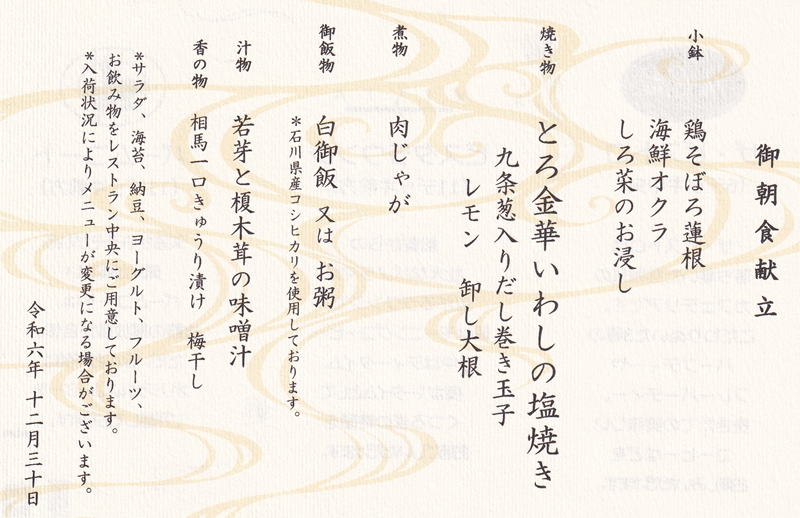 御朝食献立
小鉢
鶏そぼろ蓮根
海鮮オクラ
しろ菜のお浸し
焼き物
とろ金華いわしの塩焼き
九条葱入りだし巻き玉子
レモン 卸し大根
煮物
肉じゃが
御飯物
白御飯 又は お粥
*石川県産コシヒカリを使用しております。
汁物
若芽と榎木茸の味噌汁
香の物
相馬一口きゅうり漬け 梅干し
*サラダ、海苔、納豆、ヨーグルト、フルーツ、
お飲み物をレストラン中央にご用意しております。
*入荷状況によりメニューが変更になる場合がございます。
令和六年 十二月三十日